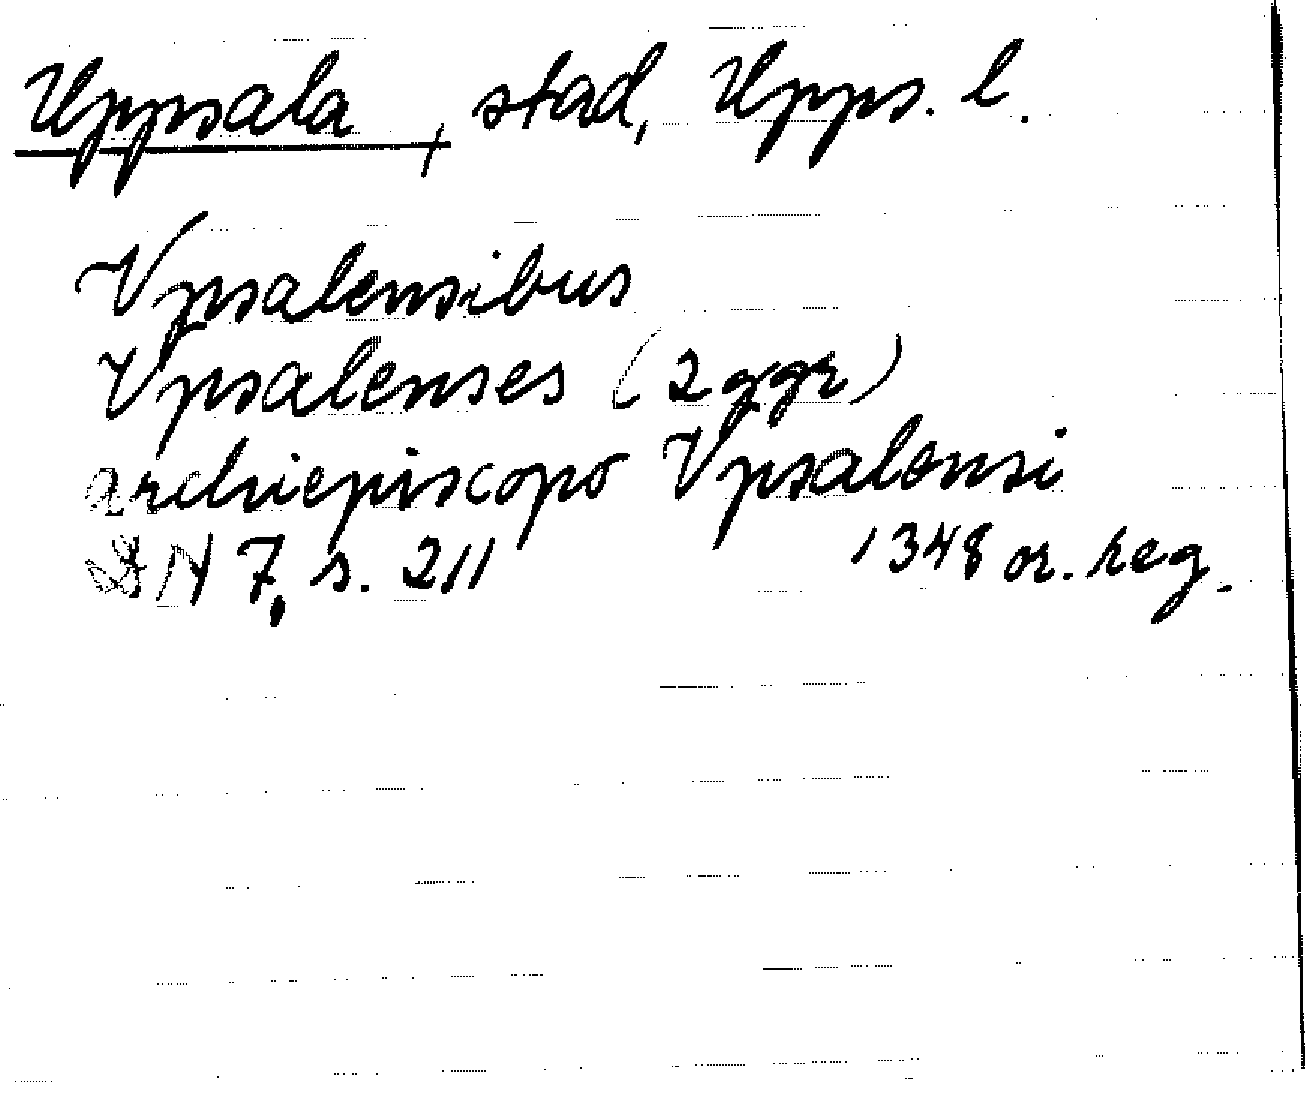 Uppsala, stad, Upps. l.
Vpsalensibus
Vpsalenses (2 ggr)
archiepiscopo Vpsalensi
DN 7, s. 211 1348 or. reg.